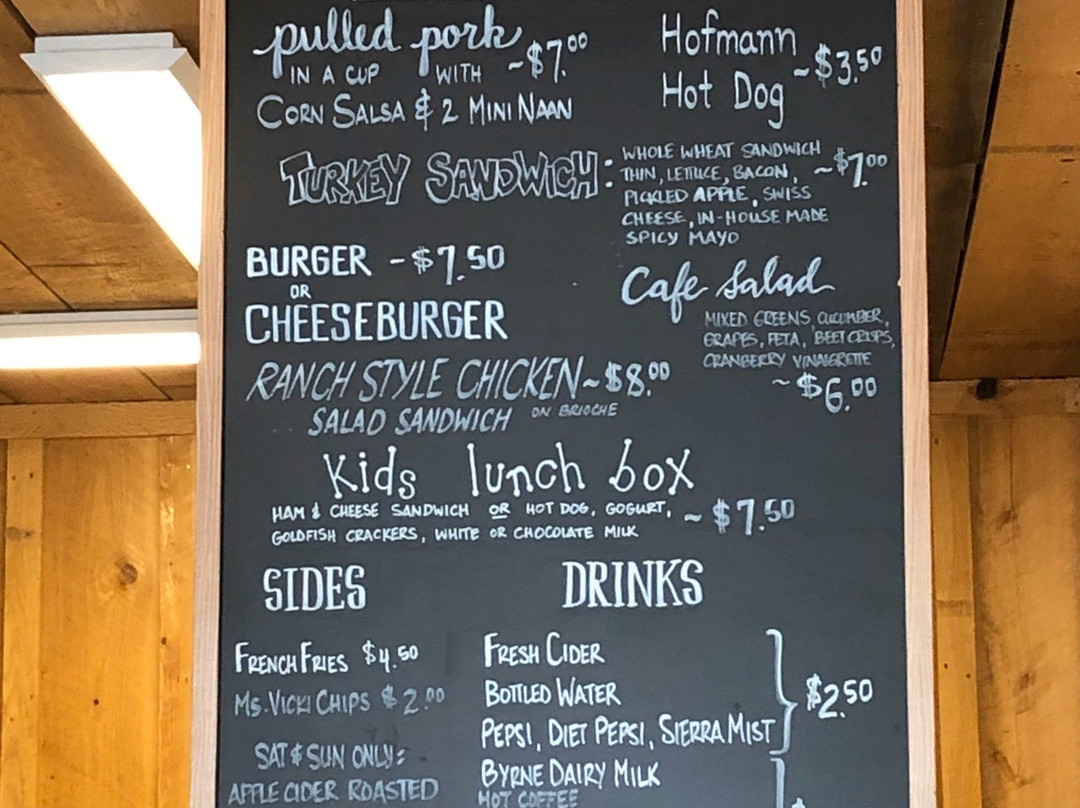 pulled pork
IN A CUP WITH ~$7.00
CORN SALSA & 2 MINI NAAN
Hofmann
Hot Dog ~$3.50
TURKEY SANDWICH:
WHOLE WHEAT SANDWICH
THIN, LETTUCE, BACON, ~$7.00
PICKLED APPLE, SWISS
CHEESE, IN-HOUSE MADE
SPICY MAYO
BURGER -$7.50
OR
CHEESEBURGER
Cafe Salad
MIXED GREENS, CUCUMBER,
GRAPES, FETA, BEET CRISPS,
CRANBERRY VINAIGRETTE
~$6.00
RANCH STYLE CHICKEN ~$8.00
SALAD SANDWICH ON BRIOCHE
Kids lunch box
HAM & CHEESE SANDWICH OR HOT DOG, GOGURT, ~$7.50
GOLDFISH CRACKERS, WHITE OR CHOCOLATE MILK
SIDES
FRENCH FRIES $4.50
MS. VICKI CHIPS $2.00
SAT & SUN ONLY:
APPLE CIDER ROASTED
DRINKS
FRESH CIDER
BOTTLED WATER
PEPSI, DIET PEPSI, SIERRA MIST
$2.50
BYRNE DAIRY MILK
HOT COFFEE